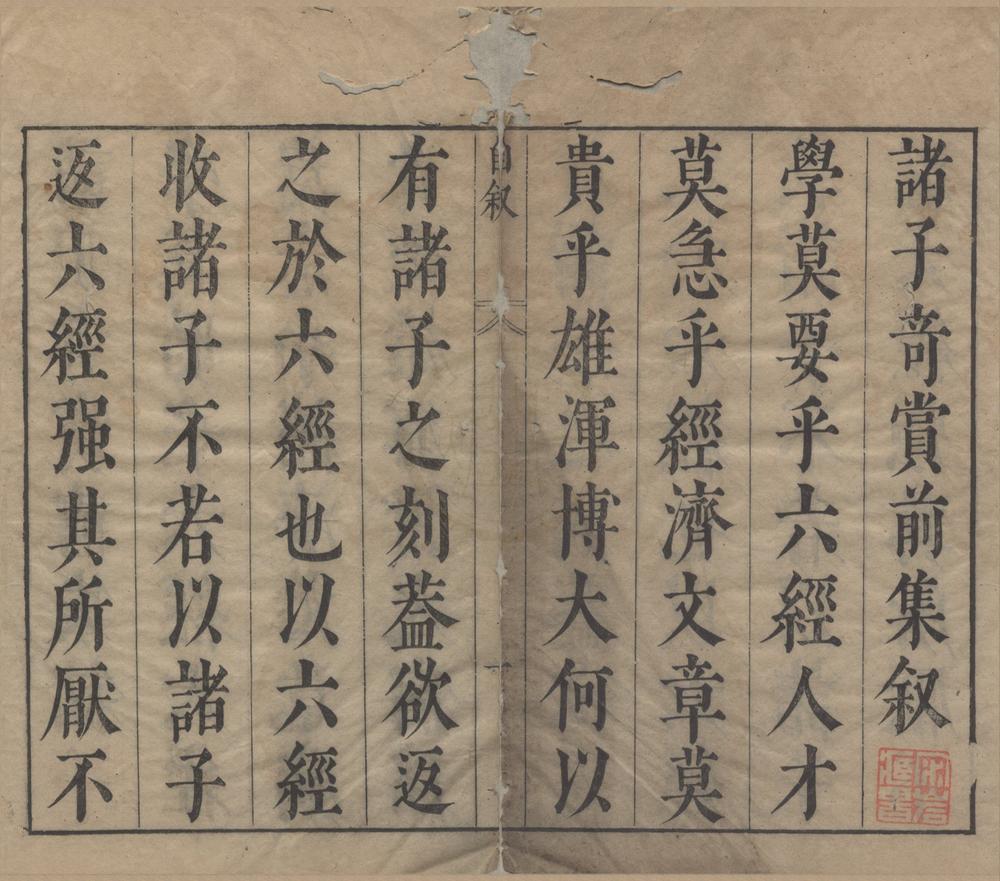 諸子奇賞前集叙
學莫要乎六經人才
莫急乎經濟文章莫
貴乎雄渾博大何以
自叙
一
有諸子之刻葢欲返
之於六經也以六經
收諸子不若以諸子
返六經强其所厭不